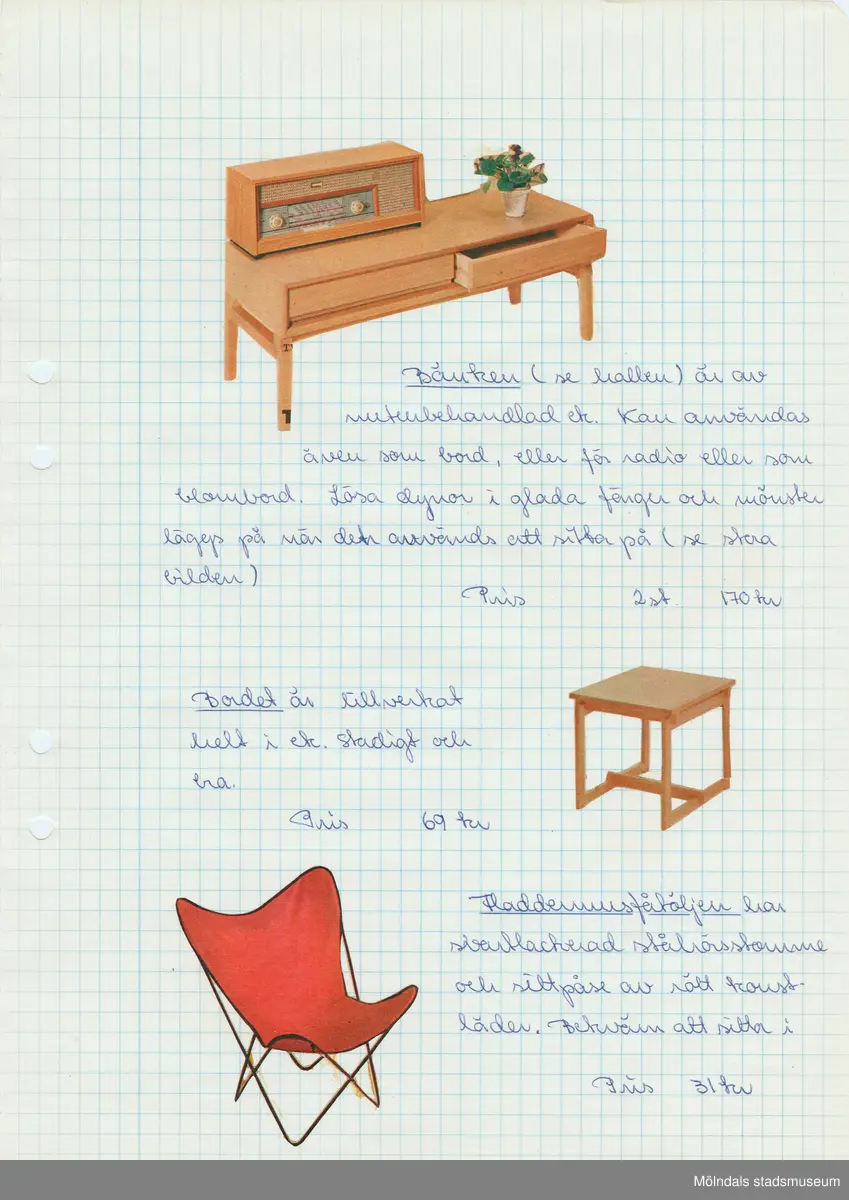 Bänken (se hallen) är av
naturbehandlad ek. Kan användas
även som bord, eller för radio eller som
blombord. Lösa dynor i glada färger och mönster
lägges på när den används att sitta på (se stora
bilden)
Pris 2 st. 170 kr
Bordet är tillverkat
helt i ek. Stadigt och
bra.
Pris 69 kr
Fladdermusfåtöljen har
svartlackerad stålrörsstomme
och sittpåse av rött konst-
läder. Bekväm att sitta i
Pris 31 kr
Mölndals stadsmuseum